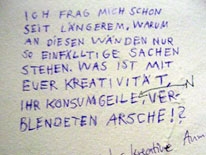 ICH FRAG MICH SCHON
SEIT LÄNGEREM, WARUM
AN DIESEN WÄNDEN NUR
SO EINFÄLTIGE SACHEN
STEHEN. WAS IST MIT
EUER KREATIVITÄT
IHR KONSUMGEILE, VER-
BLENDETEN ARSCHE!?
kreative